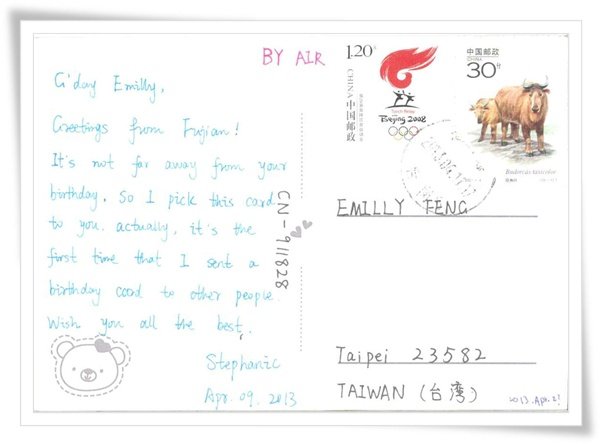 BY AIR
G'day Emilly,
Greetings from Fujian!
It's not far away from your
birthday. So I pick this card
to you. actually, it's the
first time that I sent a
birthday card to other people.
Wish you all the best.
Stephanie
Apr. 09. 2013
CN-911828
1.20元
CHINA
中国邮政
Beijing 2008
中国邮政
CHINA
30分
Budorcas taxicolor
EMILLY FENG
Taipei 23582
TAIWAN (台湾)
2013. Apr. 21